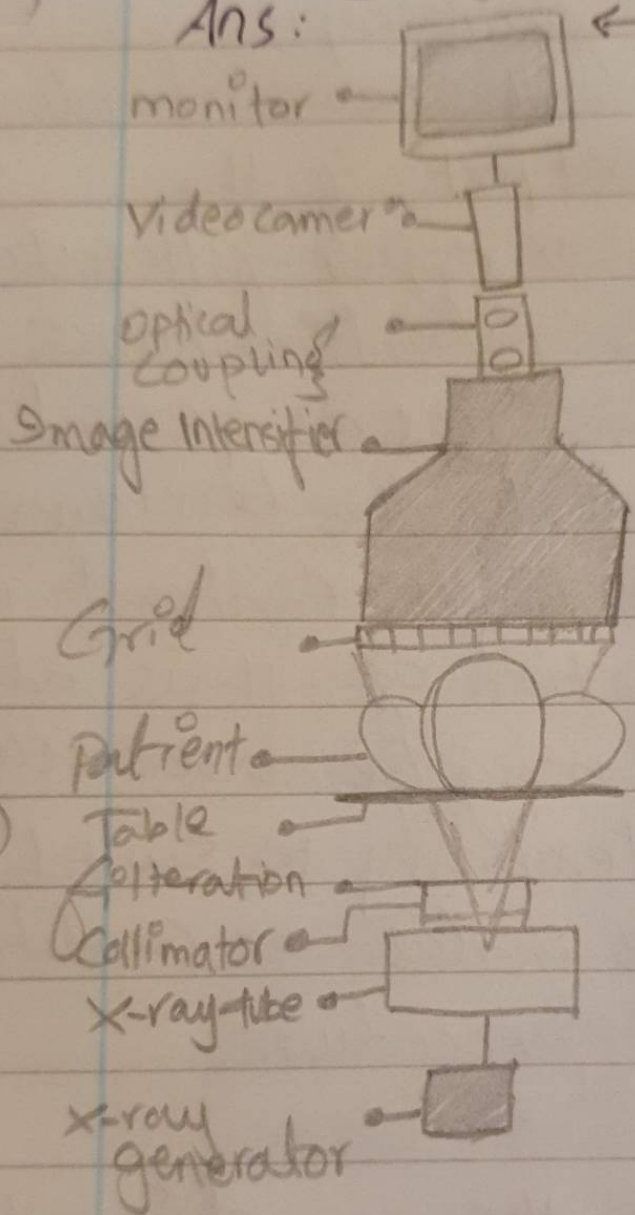 Ans:
monitor
Videocamera
optical
coupling
Image Intensifier
Grid
Patient
Table
Colteration
Collimator
X-ray-tube
x-ray
generator